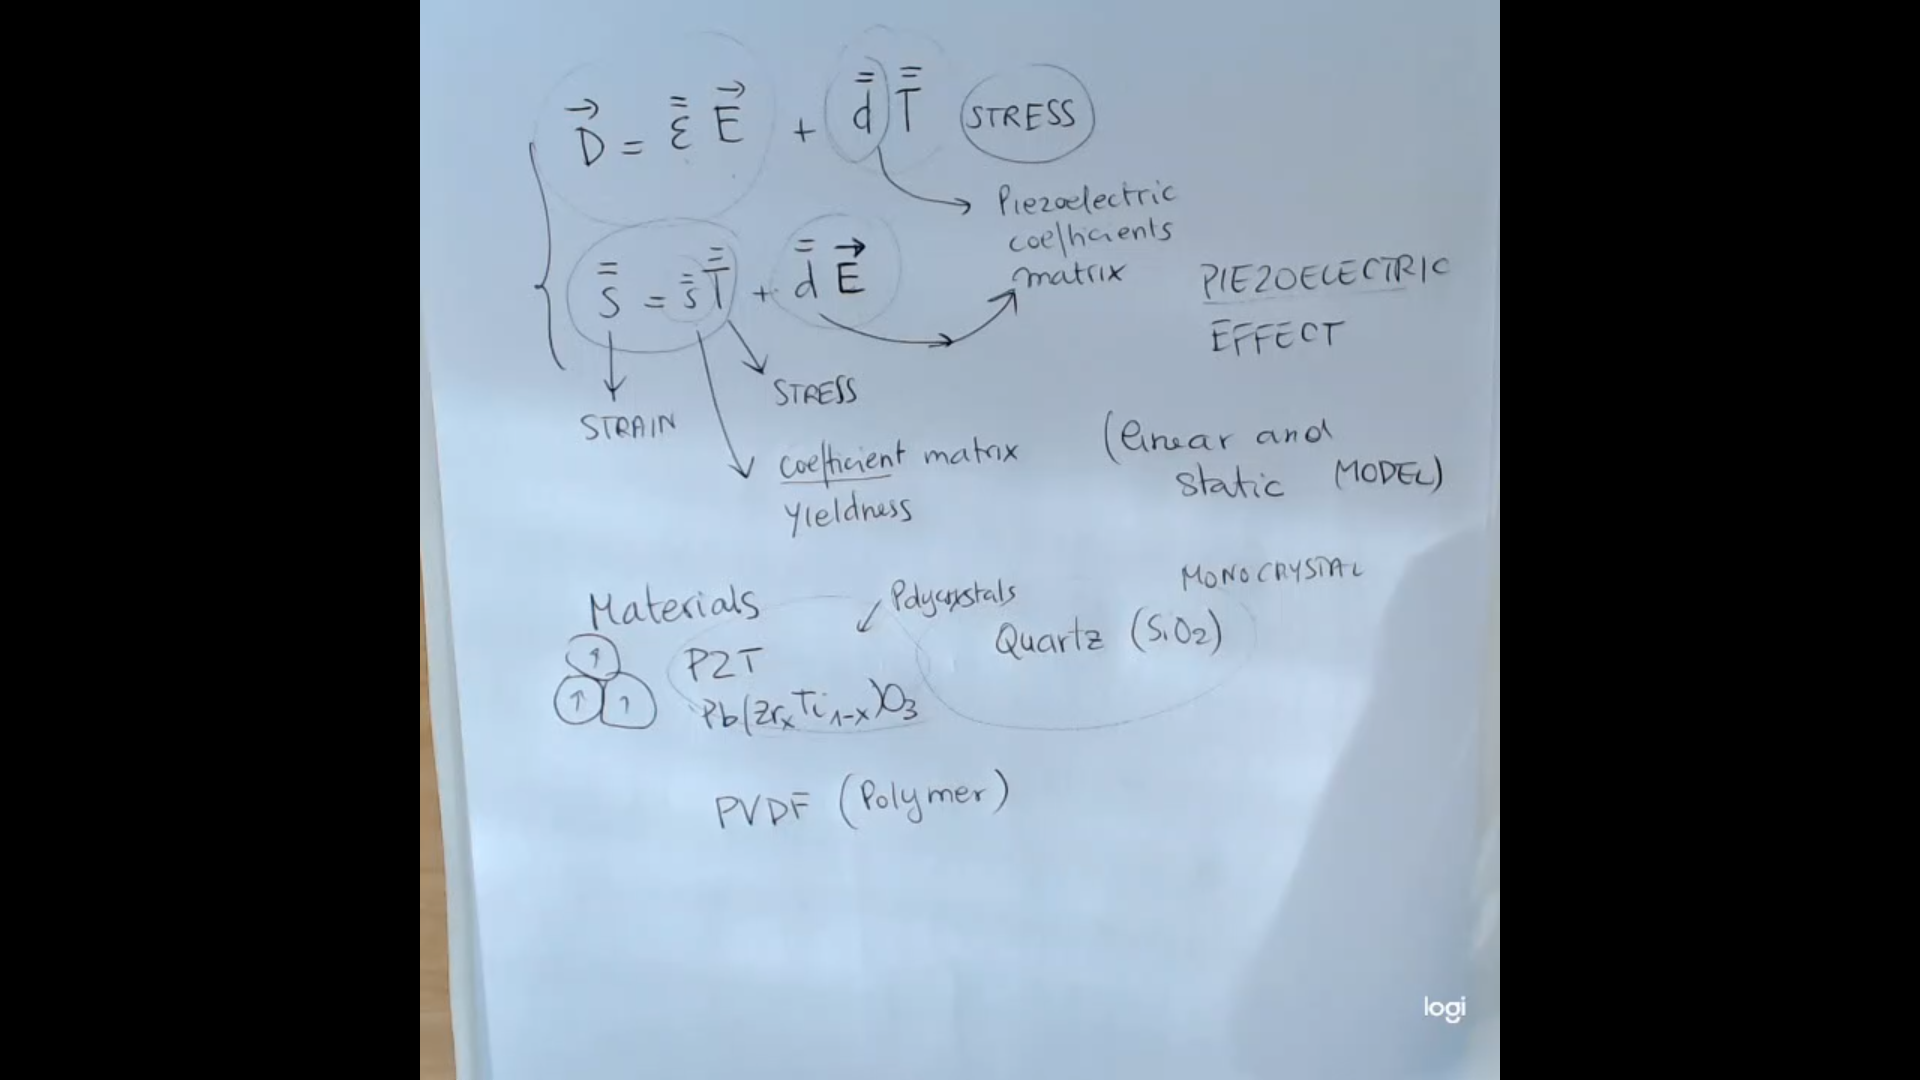 D⃗ = ε̿ E⃗ + d̿ T̿ STRESS
Piezoelectric
coefficients
matrix
S̿ = s̿ T̿ + d̿ E⃗
PIEZOELECTRIC
EFFECT
STRESS
STRAIN
coefficient matrix
yieldness
(linear and
static (MODEL)
Materials
Polycrystals
MONOCRYSTAL
Quartz (SiO2)
PZT
Pb(ZrxTi1-x)O3
PVDF (Polymer)
logi